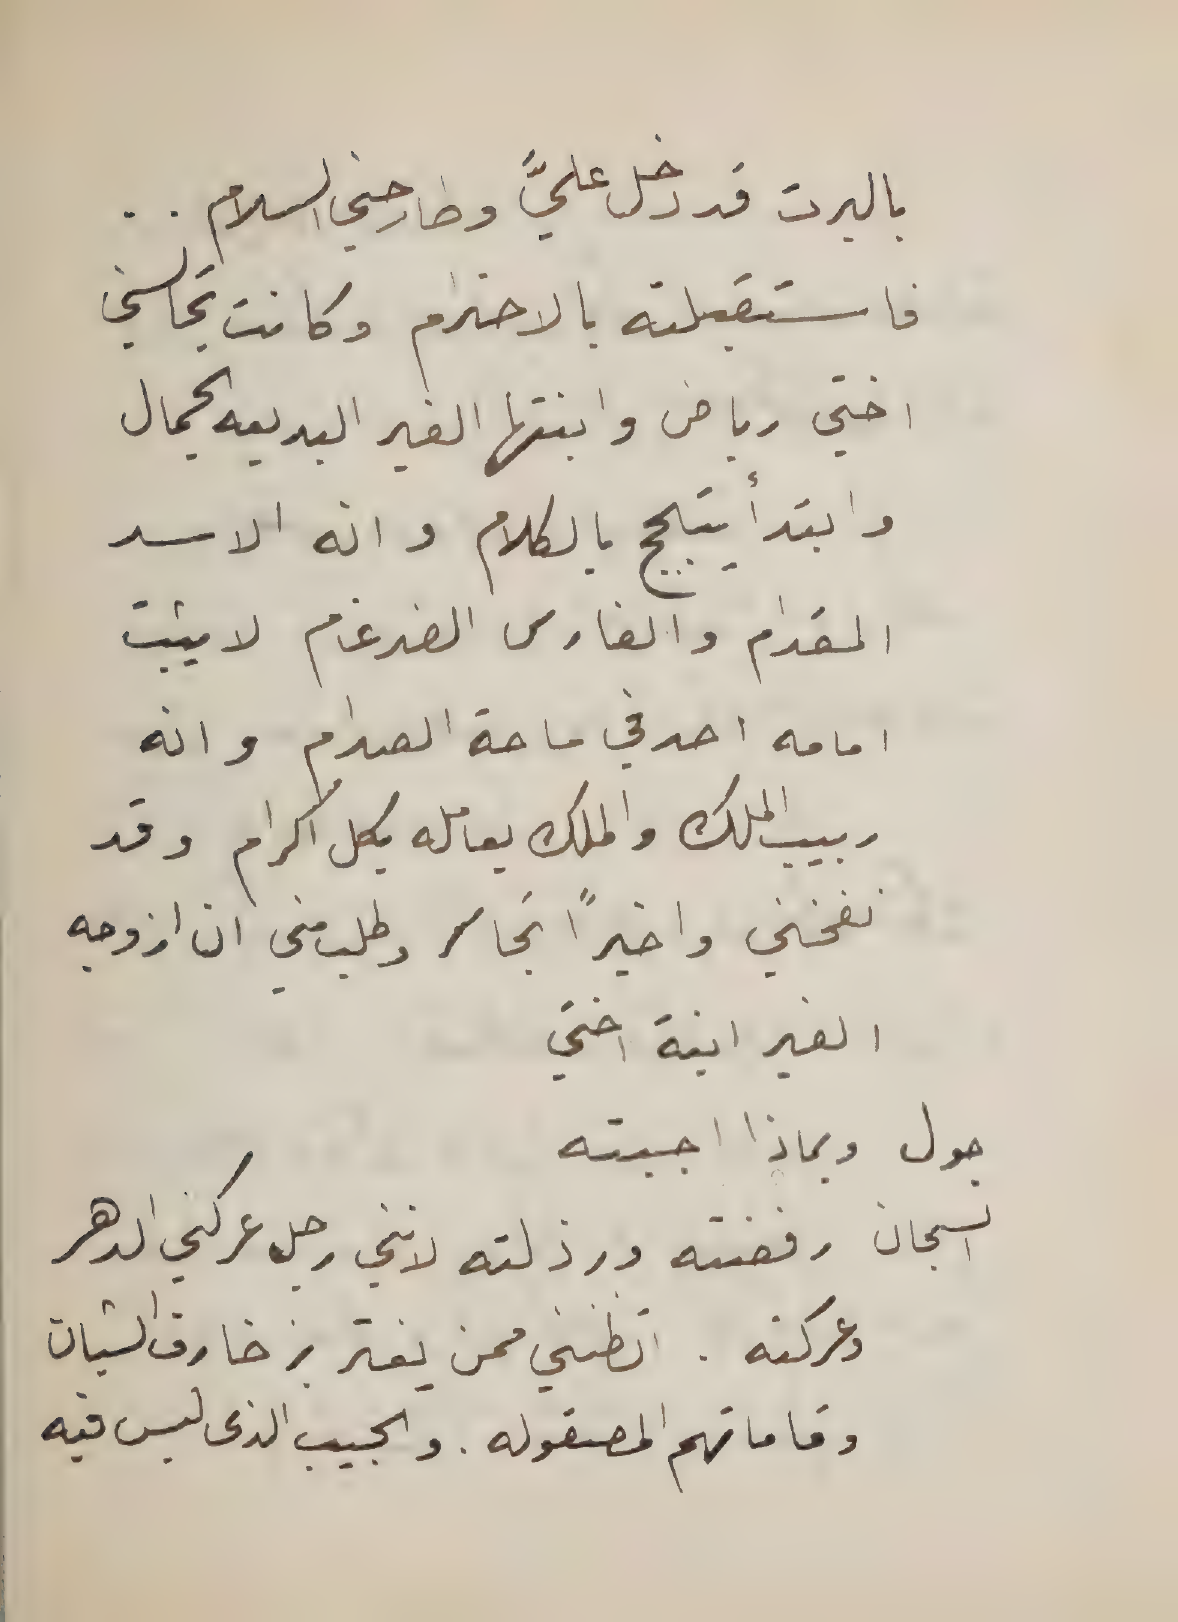 بالبرت قد دخل عليَّ وطارحني السلام . .
فاستقبلته بالاحترام وكانت تجالسني
اختي رياض وابنتها الغير البديعه الجمال
وابتدأ يتبجح بالكلام وانه الاسد
المقدام والفارس الضرغام لا يثبت
امامه احد في ساحة الصدام وانه
ربيب الملك والملك يعامله بكل اكرام وقد
نفخني واخيرًا تجاسر وطلب مني ان ازوجه
الغير ابنة اختي
جول وبماذا اجبته
السجان رفضته ورذلته لانني رجل عركني الدهر
وعركته . اتظنني ممن يغتر بزخارف الشبان
وقاماتهم المصقوله . والجيب الذى ليس فيه